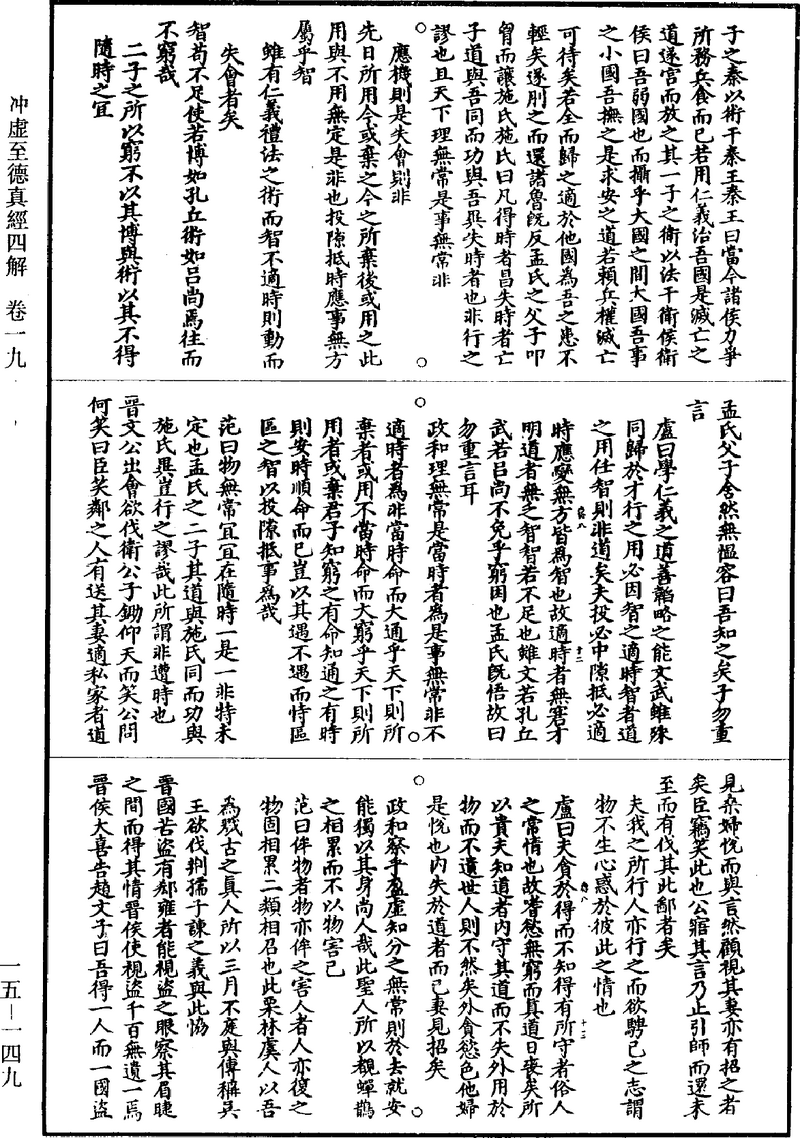 子之秦以術干秦王秦王曰當今諸侯力爭
所務兵食而已若用仁義治吾國是滅亡之
道遂宮而放之其一子之衛以法干衛侯衛
侯曰吾弱國也而攝乎大國之間大國吾事
之小國吾撫之是求安之道若賴兵權滅亡
可待矣若全而歸之適於他國為吾之患不
輕矣遂刖之而還諸魯既反孟氏之父子叩
胷而讓施氏施氏曰凡得時者昌失時者亡
子道與吾同而功與吾異失時者也非行之
謬也且天下理無常是事無常非
應機則是失會則非
先日所用今或棄之今之所棄後或用之此
用與不用無定是非也投隙抵時應事無方
屬乎智
雖有仁義禮法之術而智不適時則動而
失會者矣
智苟不足使若博如孔丘術如呂尚焉往而
不窮哉
二子之所以窮不以其博與術以其不得
隨時之宜
孟氏父子舍然無慍容曰吾知之矣子勿重
言
盧曰學仁義之道善韜略之能文武雖殊
同歸於才行之用必因智之適時智者道
之用任智則非道矣夫投必中隙抵必適
時應變無方皆為智也故適時者無窮才
明道者無乏智智若不足也雖文若孔丘
武若呂尚不免乎窮困也孟氏既悟故曰
勿重言耳
政和理無常是當時者為是事無常非不
適時者為非當時命而大通乎天下則所
棄者或用不當時命而大窮乎天下則所
用者或棄君子知窮之有命知通之有時
則安時順命而已豈以其遇不遇而恃區
區之智以投隙抵事為哉
范曰物無常宜宜在隨時一是一非特未
定也孟氏之二子其道與施氏同而功與
施氏異豈行之謬哉此所謂非遭時也
晉文公出會欲伐衛公子鋤仰天而笑公問
何笑曰臣笑鄰之人有送其妻適私家者道
見桑婦悅而與言然顧視其妻亦有招之者
矣臣竊笑此也公寤其言乃止引師而還未
至而有伐其北鄙者矣
夫我之所行人亦行之而欲騁己之志謂
物不生心惑於彼此之情也
盧曰夫貪於得而不知得有所守者俗人
之常情也故嗜慾無窮而真道日喪矣所
以貴夫知道者內守其道而不失外用於
物而不遺世人則不然矣外貪慾色他婦
是悅也內失於道者而己妻見招矣
政和察乎盈虛知分之無常則於去就安
能獨以其身尚人哉此聖人所以觀蟬鵲
之相累而不以物害己
范曰侔物者物亦侔之害人者人亦復之
物固相累二類相召也此栗林虞人以吾
為戮古之真人所以三月不庭與傳稱吳
王欲伐荆孺子諫之義與此恊
晉國苦盜有郄雍者能視盜之眼察其眉睫
之間而得其情晉侯使視盜千百無遺一焉
晉侯大喜告趙文子曰吾得一人而一國盜
冲虛至德真經四解　卷一九
一五—一四九